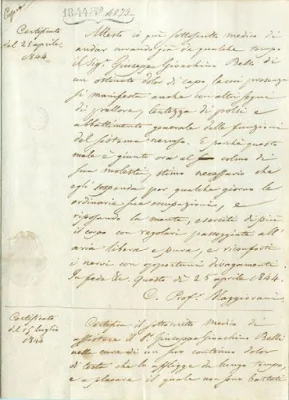 Copia
1844
Certificato
del 25 aprile
1844.
Attesto io quì sottoscritto medico di
andar curando già da qualche tempo
il Sigr. Giuseppe Gioachino Belli di
un ostinato dolor di capo, la cui presenza
si manifesta anche con altri segni
di pallore, lentezza di polsi e
abbattimento generale delle funzioni
del sistema nervoso. E poichè questo
male è giunto ora al colmo di
sua molestia, stimo necessario che
egli sospenda per qualche giorno le
ordinarie sue occupazioni, e
riposando la mente, eserciti di più
il corpo con regolari passeggiate all'
aria libera e pura, e riconforti
i nervi con opportuni divagamenti.
In fede &c. Questo dì 25 aprile 1844.
D. Profr. Maggiorani
Certificato
del 15 luglio
1844
Certifica il sottoscritto Medico di
assistere il Sr. Giuseppe Gioachino Belli
nella cura di un suo continuo dolor
di testa che lo affligge da lungo tempo,
e a placare il quale non sono bastati